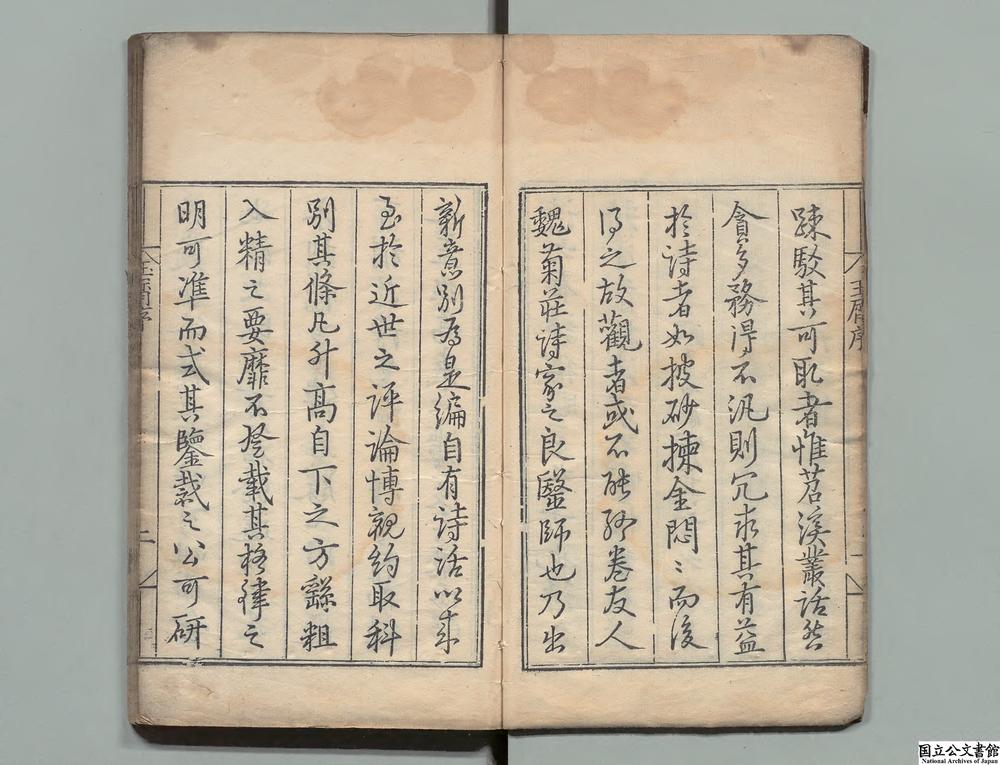 玉屑序
踈駁其可取者惟苕溪叢話然
貪多務得不汎則冗求其有益
於詩者如披砂揀金悶〻而後
得之故觀者或不能終卷友人
魏菊莊詩家之良醫師也乃出
新意別為是編自有詩話以来
至於近世之評論博觀約取科
別其條凡升高自下之方繇粗
入精之要靡不登載其格律之
明可准而式其鑒裁之公可研
玉屑序
二
国立公文書館
National Archives of Japan